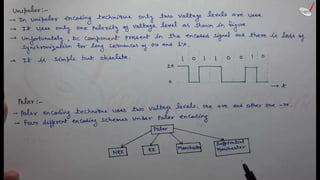 Unipolar:-
→ In unipolar encoding technique only two voltage levels are used.
→ It uses only one polarity of voltage level as shown in figure
→ Unfortunately, DC component present in the encoded signal and there is loss of
synchronization for long sequences of 0s and 1s.
→ It is simple but obsolete.
1 0 1 1 0 0 1 0
0
→ t
Polar:-
→ Polar encoding technique uses two voltage levels. one +ve and other one -ve.
→ Four different encoding schemes under Polar encoding
Polar
NRZ
RZ
Manchester
Differential
Manchester